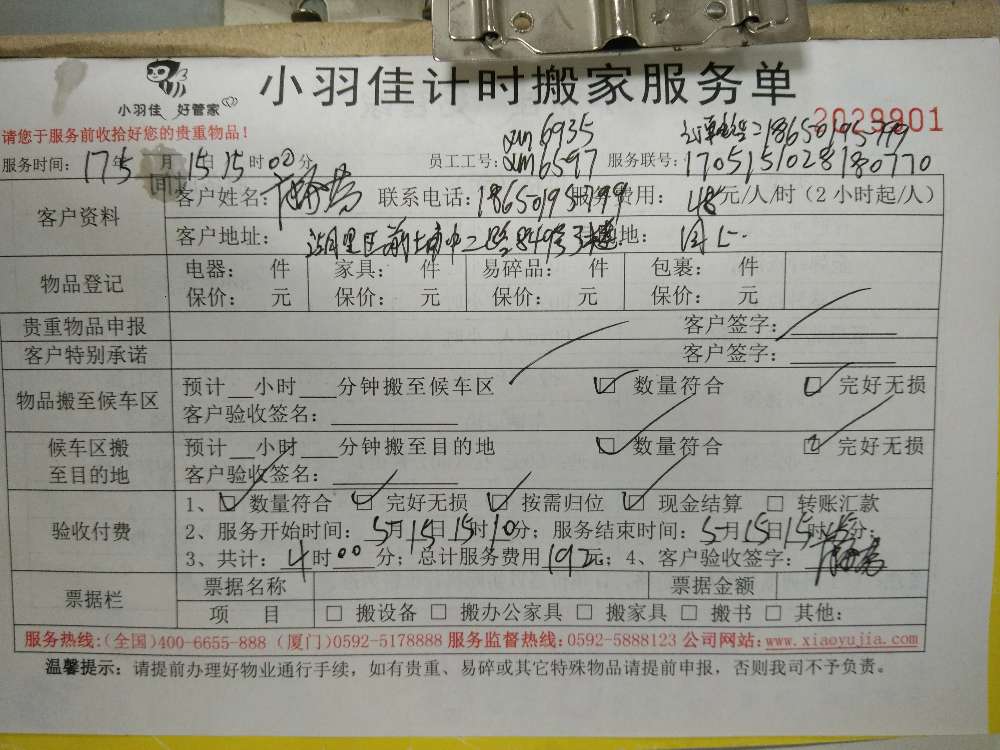 小羽佳计时搬家服务单
小羽佳 好管家
2029901
请您于服务前收拾好您的贵重物品！
XM6935
18650195799
服务时间：17年5月15日15时00分
员工工号：XM6597 服务联号：1705151028180770
客户资料
客户姓名： 联系电话：18650195799 服务费用：48元/人/时（2小时起/人）
客户地址：湖里区 中二路849号 目的地：同上.
物品登记
电器： 件 家具： 件 易碎品： 件 包裹： 件
保价： 元 保价： 元 保价： 元 保价： 元
贵重物品申报 客户签字：
客户特别承诺 客户签字：
物品搬至候车区
预计___小时___分钟搬至候车区 ☑ 数量符合 ☑ 完好无损
客户验收签名：
候车区搬至目的地
预计___小时___分钟搬至目的地 ☑ 数量符合 ☑ 完好无损
客户验收签名：
验收付费
1、☑ 数量符合 ☑ 完好无损 ☑ 按需归位 ☑ 现金结算 □ 转账汇款
2、服务开始时间：5月15日15时10分；服务结束时间：5月15日15时 分；
3、共计：4时00分；总计服务费用192元；4、客户验收签字：
票据栏
票据名称 票据金额
项 目 □ 搬设备 □ 搬办公家具 □ 搬家具 □ 搬书 □ 其他：
服务热线:(全国)400-6655-888 (厦门)0592-5178888 服务监督热线:0592-5888123 公司网站:www.xiaoyujia.com
温馨提示：请提前办理好物业通行手续，如有贵重、易碎或其它特殊物品请提前申报，否则我司不予负责。